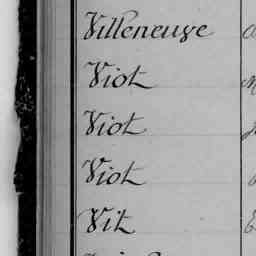 Villeneuve
Viot
Viot
Viot
Vit